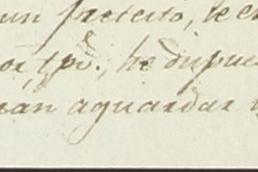 un pretexto, le en
or, tpô., he dispue
an aguardar